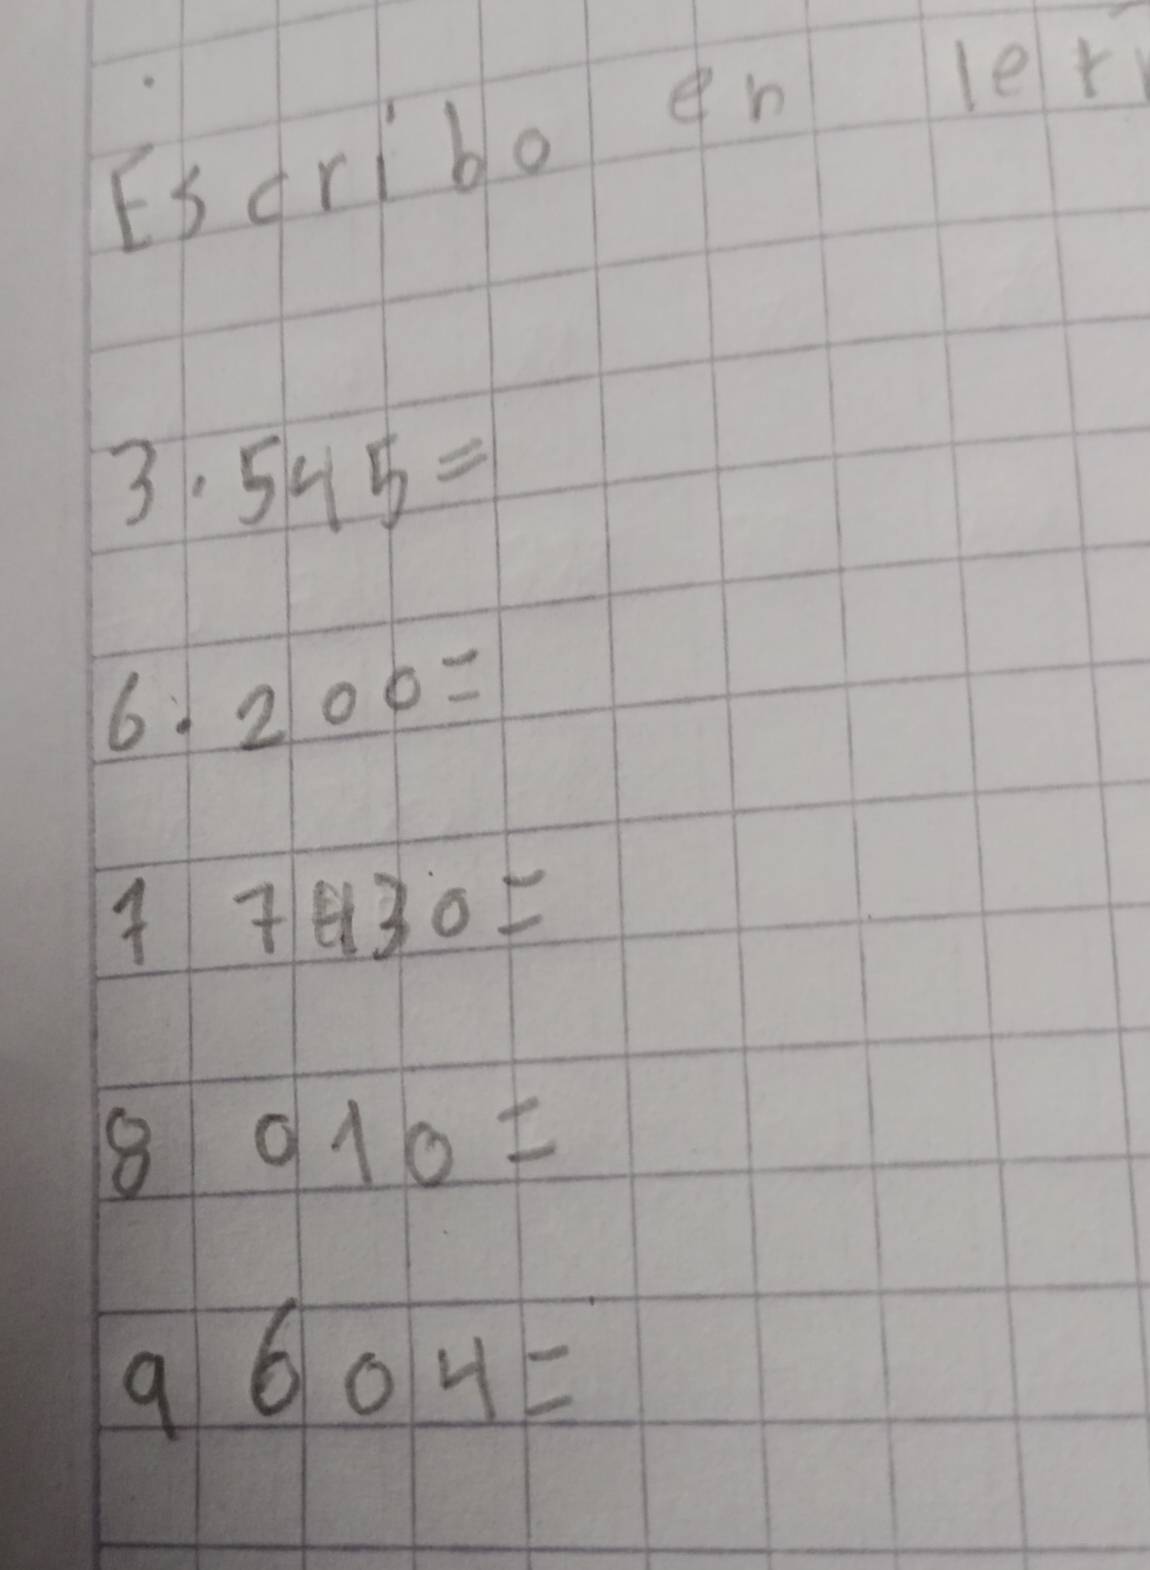 Escribo en letr
3.545=
6.200=
1 7430=
8 010=
9 604=